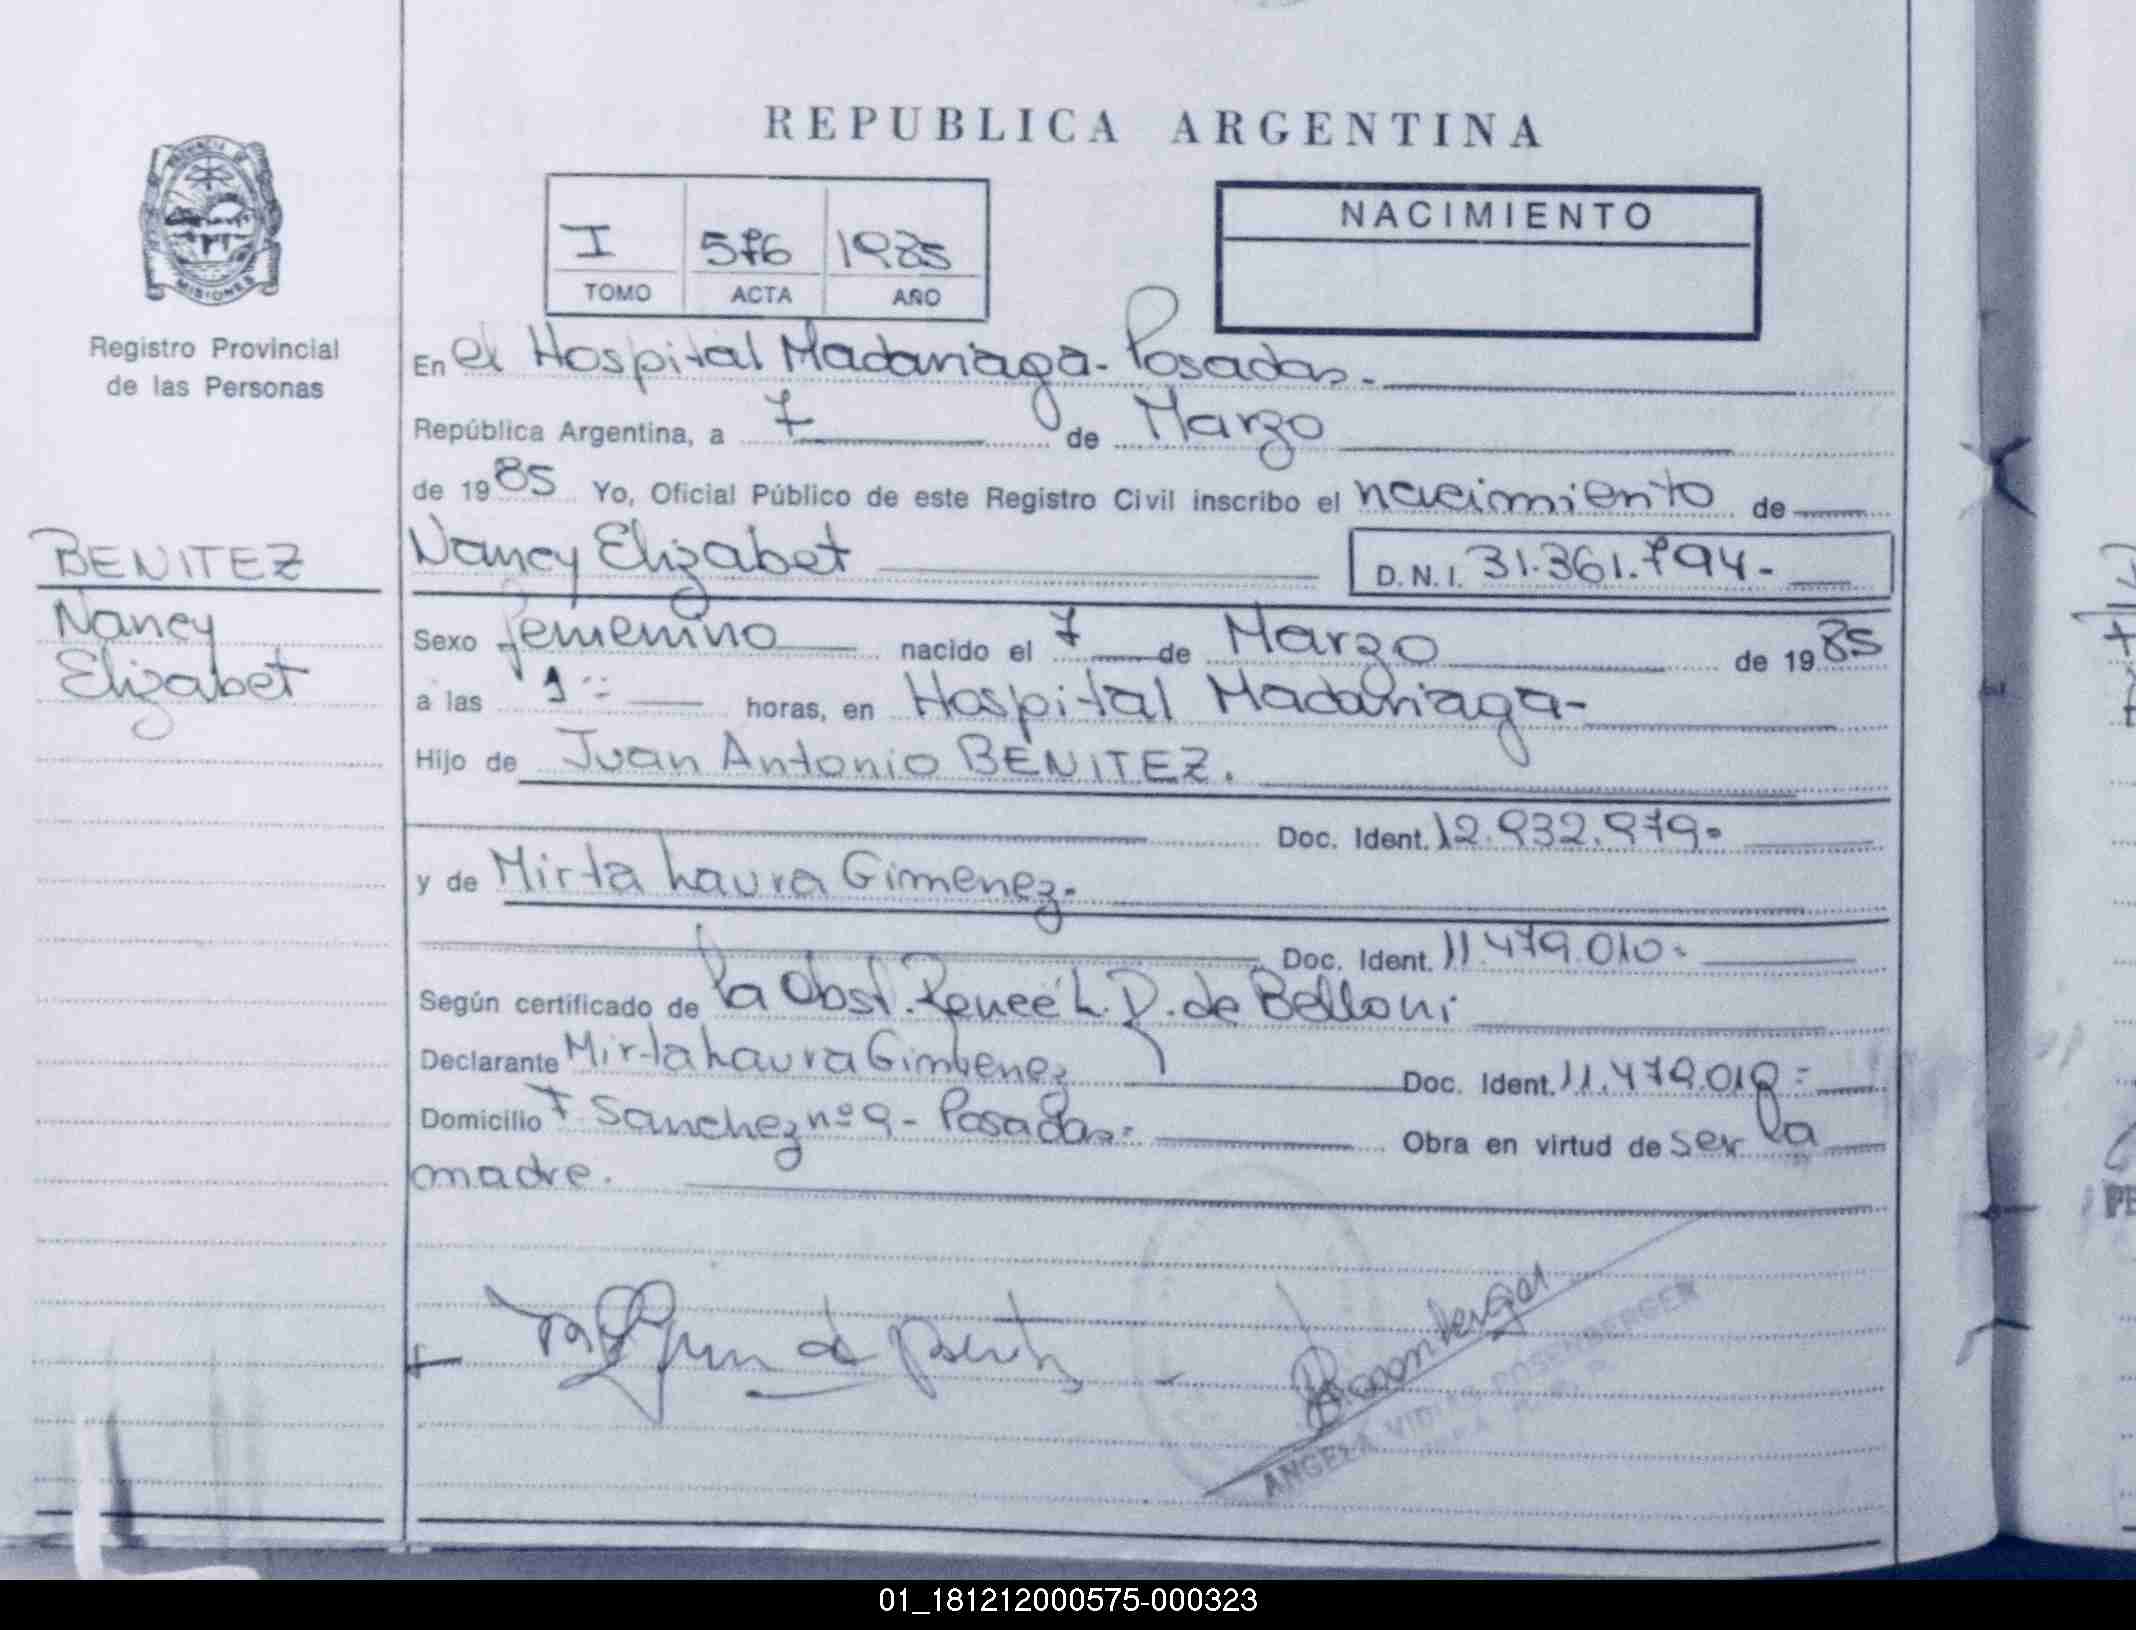 REPUBLICA ARGENTINA
PROVINCIA DE
MISIONES
Registro Provincial
de las Personas
I 576 1985
TOMO ACTA AÑO
NACIMIENTO
En el Hospital Madariaga - Posadas.-
República Argentina, a 7 de Marzo
de 1985 Yo, Oficial Público de este Registro Civil inscribo el nacimiento de
BENITEZ
Nancy
Elizabet
Nancy Elizabet D.N.I. 31.361.794-
Sexo femenino nacido el 7 de Marzo de 1985
a las 1 horas, en Hospital Madariaga-
Hijo de Juan Antonio BENITEZ.
Doc. Ident. 12.932.979-
y de Mirta Laura Gimenez.
Doc. Ident. 11.479.010-
Según certificado de la Obst. Reneé L. D. de Belloni
Declarante Mirta Laura Gimenez Doc. Ident. 11.479.010=
Domicilio F Sanchez nº 9 - Posadas= Obra en virtud de ser la
madre.
Rosenberger
ANGELA ROSENBERGER
01_181212000575-000323